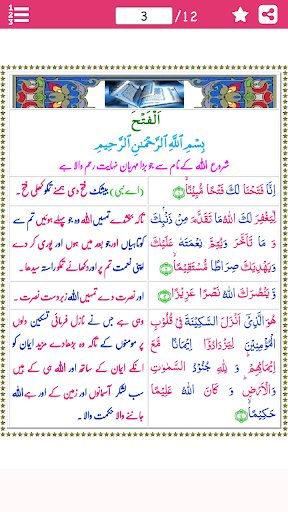 1
2
3
3
/12
اَلْفَتْحَ
بِسْمِ اللَّهِ الرَّحْمَٰنِ الرَّحِيمِ
شروع اللہ کے نام سے جو بڑا مہربان نہایت رحم والا ہے
اِنَّا فَتَحْنَا لَكَ فَتْحًا مُّبِيْنًا
(اے نبی) بیشک فتح دی ہمنے تمکو کھلی فتح۔
لِّيَغْفِرَ لَكَ اللّٰهُ مَا تَقَدَّمَ مِنْ ذَنْۢبِكَ
وَ مَا تَاَخَّرَ وَ يُتِمَّ نِعْمَتَهٗ عَلَيْكَ
وَ يَهْدِيَكَ صِرَاطًا مُّسْتَقِيْمًا
تاکہ بخشدے تمہیں اللہ وہ جو پہلے ہوئیں تم سے
کوتاہیاں اور جو بعد میں ہوں اور پوری کر دے
اپنی نعمت تم پر اور دکھائے تمکو راستہ سیدھا۔
وَّ يَنْصُرَكَ اللّٰهُ نَصْرًا عَزِيْزًا
اور نصرت دے تمہیں اللہ زبردست نصرت۔
هُوَ الَّذِيْۤ اَنْزَلَ السَّكِيْنَةَ فِيْ قُلُوْبِ
الْمُؤْمِنِيْنَ لِيَزْدَادُوْۤا اِيْمَانًا مَّعَ
اِيْمَانِهِمْ وَ لِلّٰهِ جُنُوْدُ السَّمٰوٰتِ
وَ الْاَرْضِ وَ كَانَ اللّٰهُ عَلِيْمًا
حَكِيْمًا
وہی ہے جس نے نازل فرمائی تسکین دلوں
پر مومنوں کے تاکہ وہ بڑھادے مزید ایمان کو
انکے ایمان کے ساتھ اور اللہ ہی کے ہیں
سب لشکر آسمانوں اور زمین کے اور ہے اللہ
جاننے والا حکمت والا۔